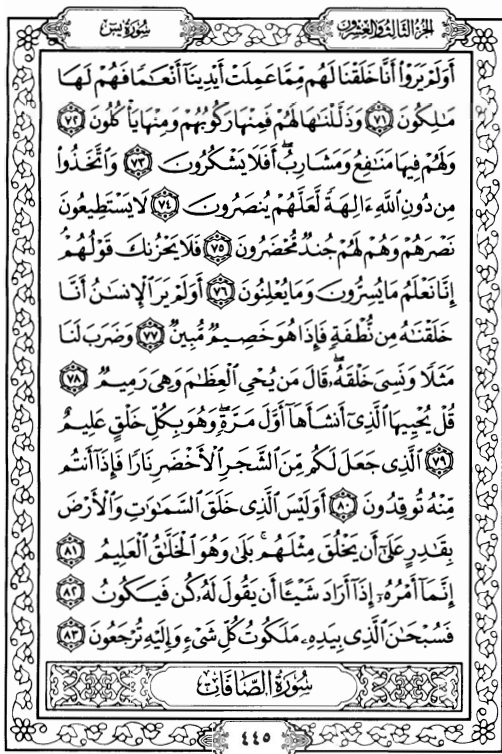 الجزء الثالث والعشرون
سورة يس
أَوَلَمْ يَرَوْا۟ أَنَّا خَلَقْنَا لَهُم مِّمَّا عَمِلَتْ أَيْدِينَآ أَنْعَـٰمًا فَهُمْ لَهَا
مَـٰلِكُونَ ٧١ وَذَلَّلْنَـٰهَا لَهُمْ فَمِنْهَا رَكُوبُهُمْ وَمِنْهَا يَأْكُلُونَ ٧٢
وَلَهُمْ فِيهَا مَنَـٰفِعُ وَمَشَارِبُ ۖ أَفَلَا يَشْكُرُونَ ٧٣ وَٱتَّخَذُوا۟
مِن دُونِ ٱللَّهِ ءَالِهَةً لَّعَلَّهُمْ يُنصَرُونَ ٧٤ لَا يَسْتَطِيعُونَ
نَصْرَهُمْ وَهُمْ لَهُمْ جُندٌ مُّحْضَرُونَ ٧٥ فَلَا يَحْزُنكَ قَوْلُهُمْ
إِنَّا نَعْلَمُ مَا يُسِرُّونَ وَمَا يُعْلِنُونَ ٧٦ أَوَلَمْ يَرَ ٱلْإِنسَـٰنُ أَنَّا
خَلَقْنَـٰهُ مِن نُّطْفَةٍ فَإِذَا هُوَ خَصِيمٌ مُّبِينٌ ٧٧ وَضَرَبَ لَنَا
مَثَلًا وَنَسِىَ خَلْقَهُۥ ۖ قَالَ مَن يُحْىِ ٱلْعِظَـٰمَ وَهِىَ رَمِيمٌ ٧٨
قُلْ يُحْيِيهَا ٱلَّذِىٓ أَنشَأَهَآ أَوَّلَ مَرَّةٍ ۖ وَهُوَ بِكُلِّ خَلْقٍ عَلِيمٌ
٧٩ ٱلَّذِى جَعَلَ لَكُم مِّنَ ٱلشَّجَرِ ٱلْأَخْضَرِ نَارًا فَإِذَآ أَنتُم
مِّنْهُ تُوقِدُونَ ٨٠ أَوَلَيْسَ ٱلَّذِى خَلَقَ ٱلسَّمَـٰوَٰتِ وَٱلْأَرْضَ
بِقَـٰدِرٍ عَلَىٰٓ أَن يَخْلُقَ مِثْلَهُم ۚ بَلَىٰ وَهُوَ ٱلْخَلَّـٰقُ ٱلْعَلِيمُ ٨١
إِنَّمَآ أَمْرُهُۥٓ إِذَآ أَرَادَ شَيْـًٔا أَن يَقُولَ لَهُۥ كُن فَيَكُونُ ٨٢
فَسُبْحَـٰنَ ٱلَّذِى بِيَدِهِۦ مَلَكُوتُ كُلِّ شَىْءٍ وَإِلَيْهِ تُرْجَعُونَ ٨٣
سُورَةُ الصَّافَّات
٤٤٥